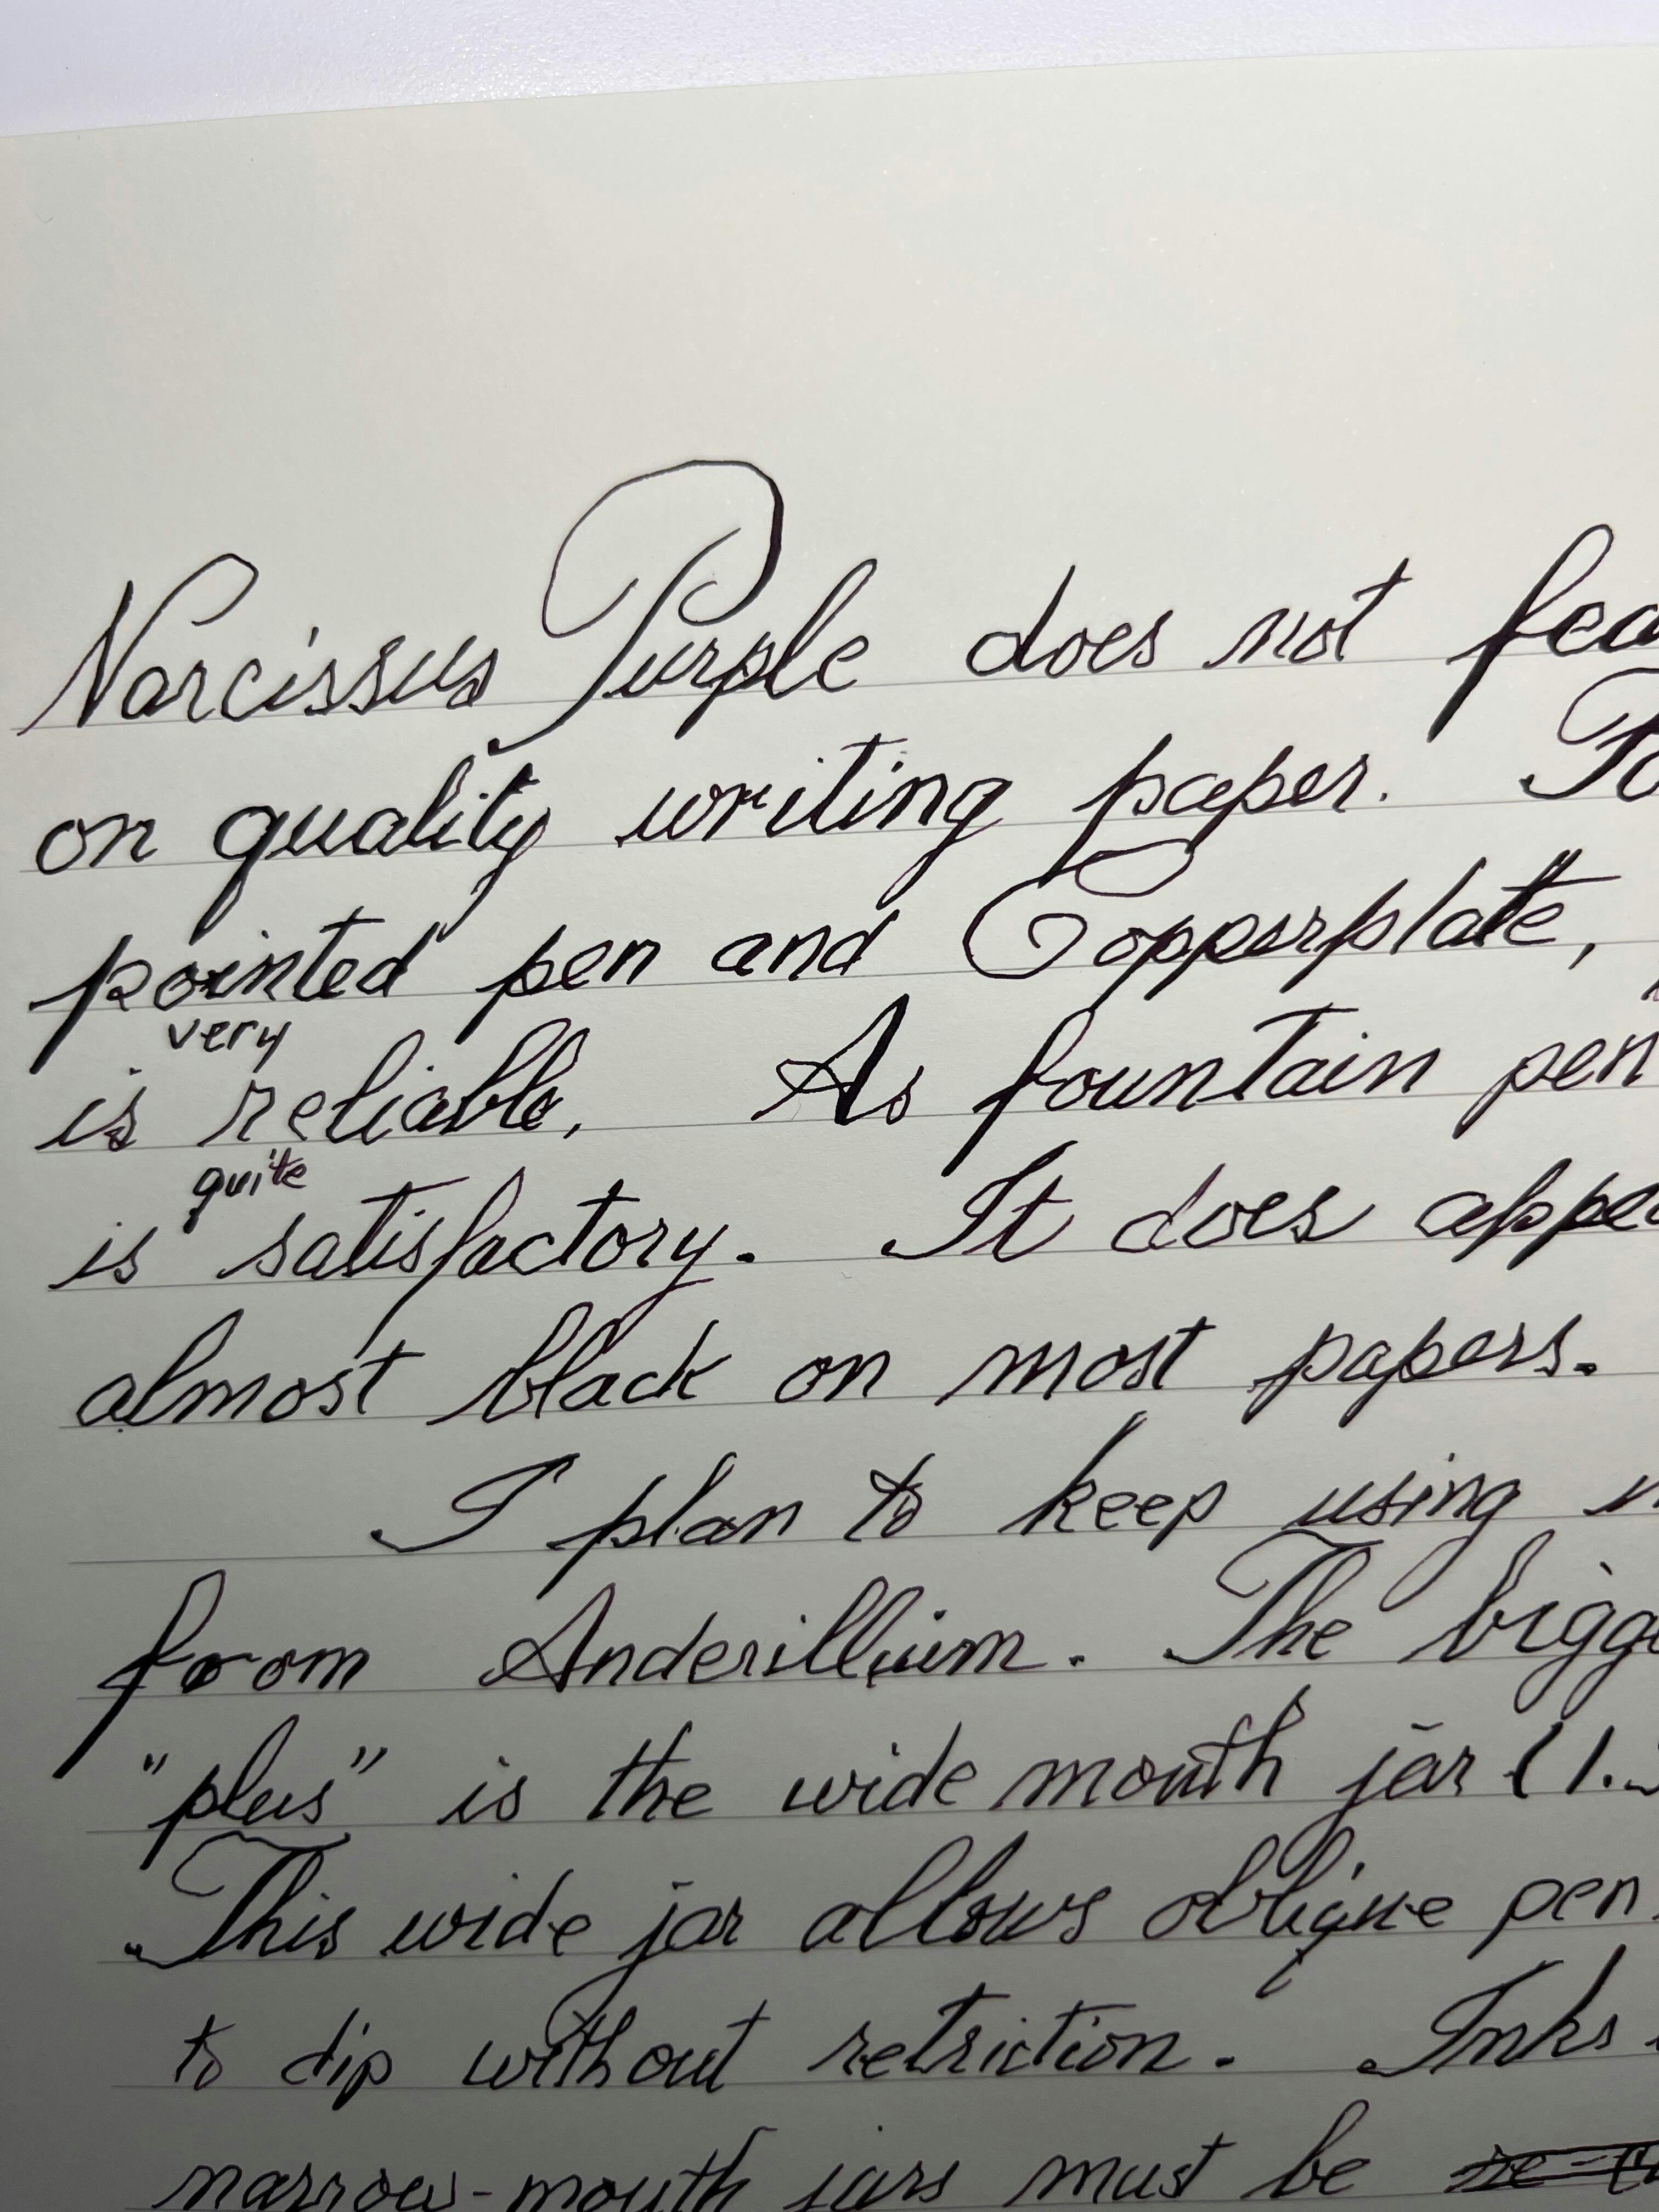 Narcissus Purple does not
on quality writing paper.
pointed pen and Copperplate,
very
is reliable, As fountain pen
quite
is satisfactory. It does
almost black on most papers.
I plan to keep using
from Anderillium. The
"plus" is the wide mouth jar (1.
This wide jar allows oblique pen
to dip without retriction. Inks
narrow-mouth jars must be